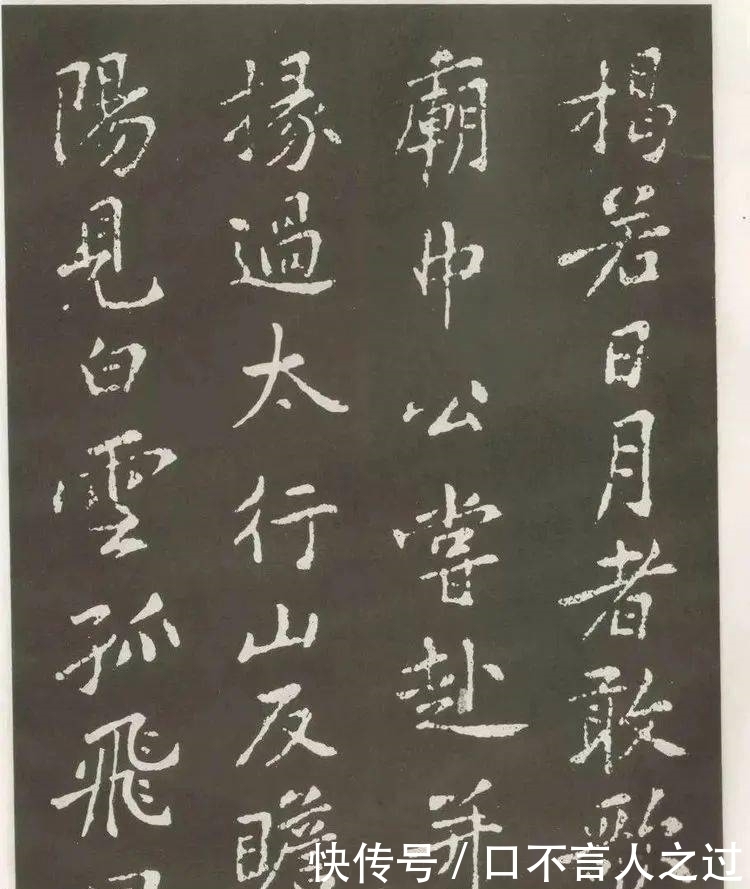 揭若日月者敢歌
廟中公嘗赴并
掾過太行山反瞻
陽見白雲孤飛
快传号/口不言人之过